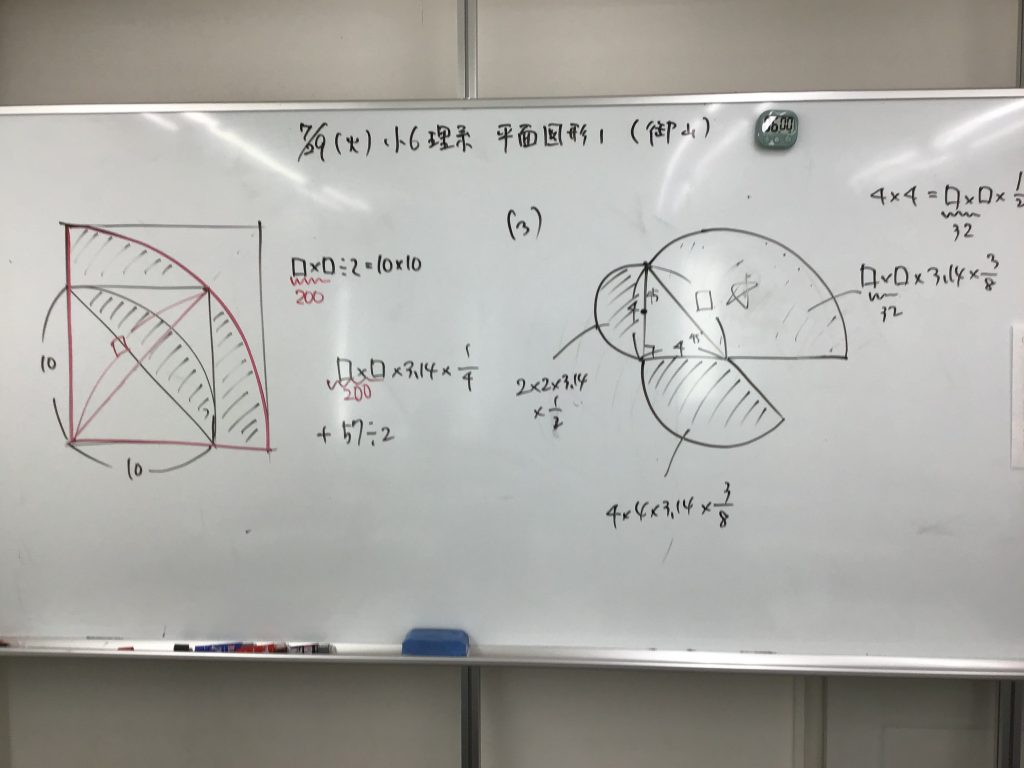 7/29(火) 小6理系 平面図形1 (御山)
600
□×□÷2=10×10
200
□×□×3.14×1/4
200
+57÷2
10
10
(3)
4×4=□×□×1/2
32
□×□×3.14×3/8
32
4
□
4
2×2×3.14
×1/2
4×4×3.14×3/8